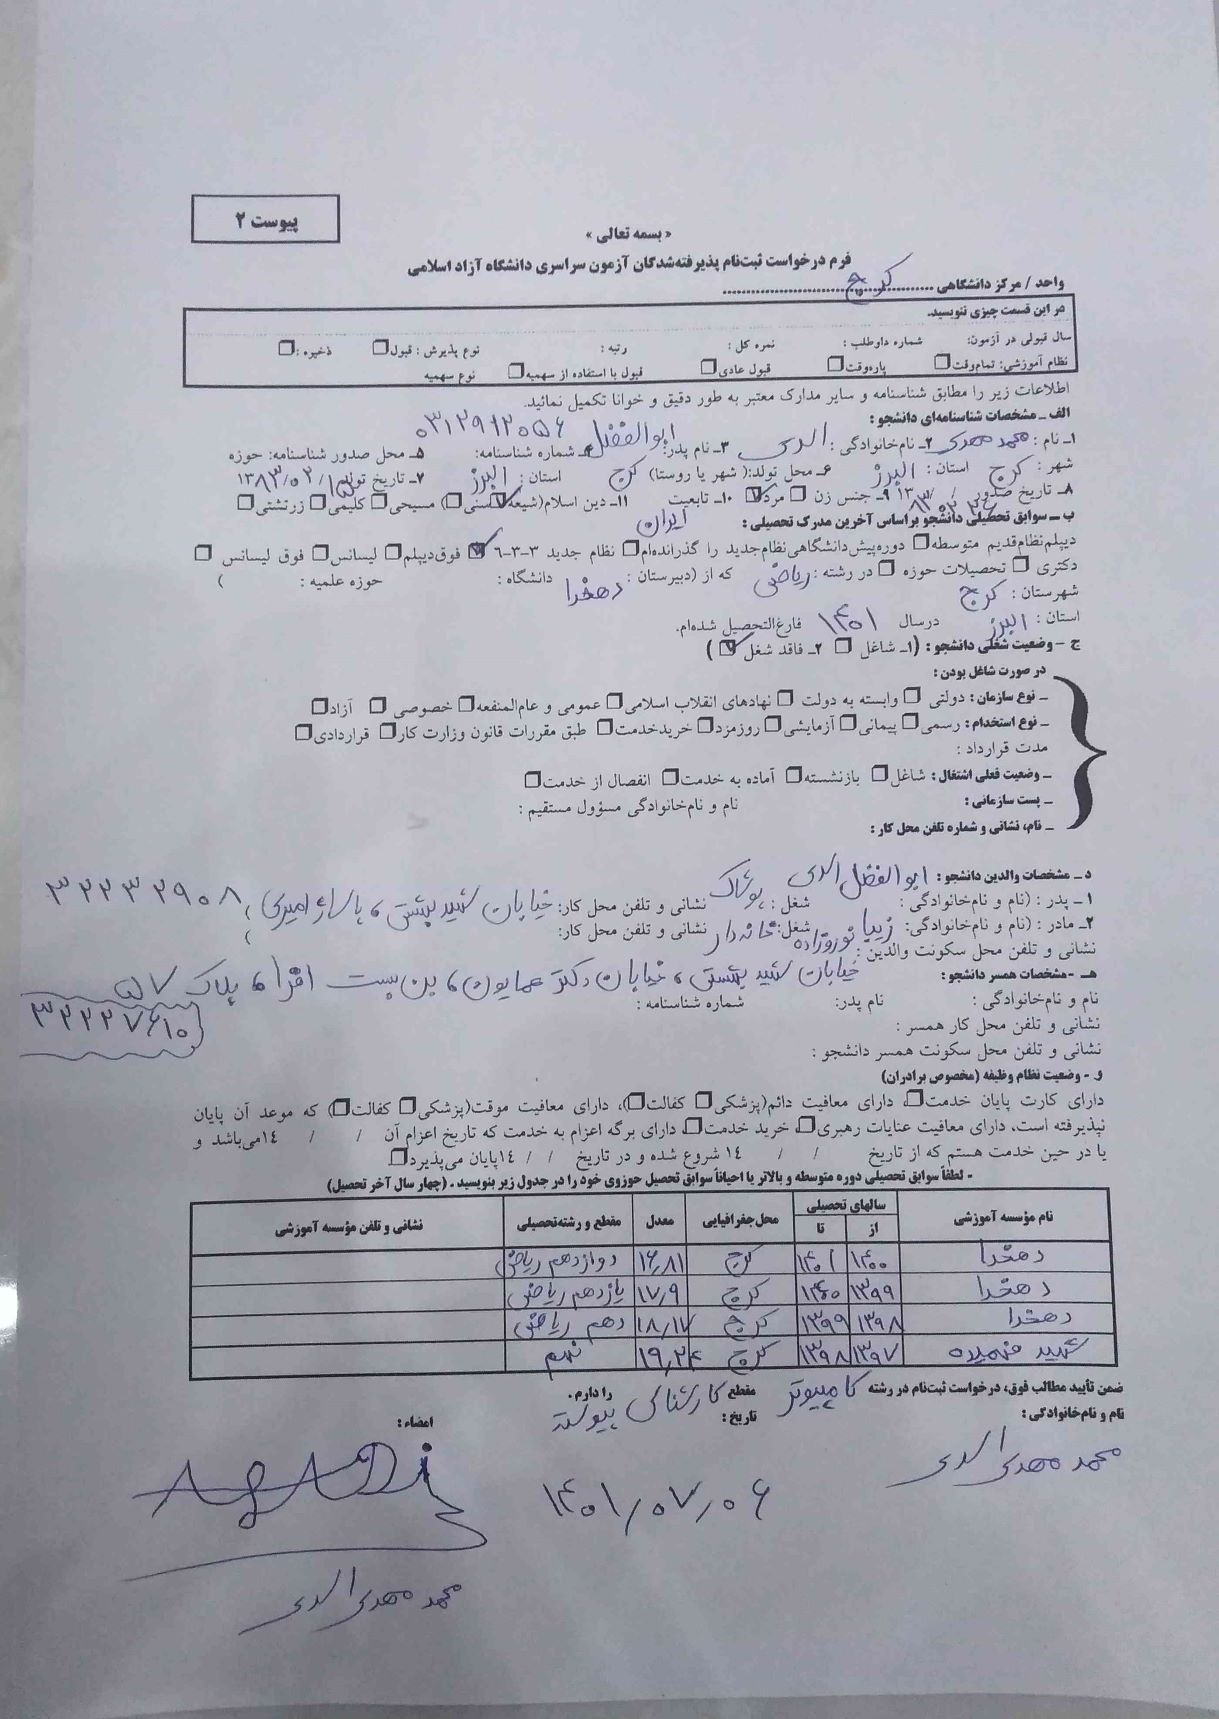 پیوست ۲
« بسمه تعالی »
فرم درخواست ثبت‌نام پذیرفته‌شدگان آزمون سراسری دانشگاه آزاد اسلامی
واحد / مرکز دانشگاهی ........ کرج ........
در این قسمت چیزی ننویسید.
سال قبولی در آزمون: شماره داوطلب : نمره کل : رتبه : نوع پذیرش : قبول □ ذخیره : □
نظام آموزشی: تمام‌وقت □ پاره‌وقت □ قبول عادی □ قبول با استفاده از سهمیه □ نوع سهمیه
اطلاعات زیر را مطابق شناسنامه و سایر مدارک معتبر به طور دقیق و خوانا تکمیل نمائید.
الف ـ مشخصات شناسنامه‌ای دانشجو :
۱ـ نام : محمد مهدی ۲ـ نام‌خانوادگی : ۳ـ نام پدر: ابوالفضل ۴ـ شماره شناسنامه: ۰۳۱۲۹۱۲۰۵۶ ۵ـ محل صدور شناسنامه: حوزه
شهر : کرج استان : البرز ۶ـ محل تولد:( شهر یا روستا) کرج استان : البرز ۷ـ تاریخ تولد ۱۳۸۳/۰۲/۱۵
۸ـ تاریخ صدور / / ۱۳ ۹ـ جنس زن □ مرد ☑ ۱۰ـ تابعیت ایران ۱۱ـ دین اسلام(شیعه ☑ سنی □) مسیحی □ کلیمی □ زرتشتی □
ب ـ سوابق تحصیلی دانشجو براساس آخرین مدرک تحصیلی :
دیپلم‌نظام‌قدیم متوسطه □ دوره‌پیش‌دانشگاهی‌نظام‌جدید را گذرانده‌ام □ نظام جدید ۳-۳-۶ ☑ فوق‌دیپلم □ لیسانس □ فوق لیسانس □
دکتری □ تحصیلات حوزه □ در رشته : ریاضی که از (دبیرستان : دهخدا دانشگاه : حوزه علمیه : )
شهرستان : کرج
استان : البرز درسال ۱۴۰۱ فارغ‌التحصیل شده‌ام.
ج – وضعیت شغلی دانشجو : (۱ـ شاغل □ ۲ـ فاقد شغل ☑ )
در صورت شاغل بودن :
ـ نوع سازمان : دولتی □ وابسته به دولت □ نهادهای انقلاب اسلامی □ عمومی و عام‌المنفعه □ خصوصی □ آزاد □
ـ نوع استخدام : رسمی □ پیمانی □ آزمایشی □ روزمزد □ خریدخدمت □ طبق مقررات قانون وزارت کار □ قراردادی □
مدت قرارداد :
ـ وضعیت فعلی اشتغال : شاغل □ بازنشسته □ آماده به خدمت □ انفصال از خدمت □
ـ پست سازمانی : نام و نام‌خانوادگی مسؤول مستقیم :
ـ نام، نشانی و شماره تلفن محل کار :
د ـ مشخصات والدین دانشجو :
۱ ـ پدر : (نام و نام‌خانوادگی : ابوالفضل شغل : پوشاک نشانی و تلفن محل کار: خیابان شهید بهشتی، پاساژ امیری ) ۳۲۲۳۲۹۰۸
۲ـ مادر : (نام و نام‌خانوادگی: زیبا نوروززاده شغل: خانه‌دار نشانی و تلفن محل کار: )
نشانی و تلفن محل سکونت والدین : خیابان شهید بهشتی، خیابان دکتر همایون، بن بست افرا، پلاک ۵۷
۳۲۲۲۷۶۱۰
هـ ـ مشخصات همسر دانشجو :
نام و نام‌خانوادگی : نام پدر: شماره شناسنامه :
نشانی و تلفن محل کار همسر :
نشانی و تلفن محل سکونت همسر دانشجو :
و - وضعیت نظام وظیفه (مخصوص برادران)
دارای کارت پایان خدمت □، دارای معافیت دائم(پزشکی □ کفالت □)، دارای معافیت موقت(پزشکی □ کفالت □) که موعد آن پایان
نپذیرفته است، دارای معافیت عنایات رهبری □، خرید خدمت □، دارای برگه اعزام به خدمت که تاریخ اعزام آن / / ۱۴می‌باشد و
یا در حین خدمت هستم که از تاریخ / / ۱۴ شروع شده و در تاریخ / / ۱۴پایان می‌پذیرد □
- لطفاً سوابق تحصیلی دوره متوسطه و بالاتر یا احیاناً سوابق تحصیل حوزوی خود را در جدول زیر بنویسید . (چهار سال آخر تحصیل)
نام مؤسسه آموزشی سالهای تحصیلی از تا محل‌جغرافیایی معدل مقطع و رشته‌تحصیلی نشانی و تلفن مؤسسه آموزشی
دهخدا ۱۴۰۰ ۱۴۰۱ کرج ۱۶/۸۱ دوازدهم ریاضی
دهخدا ۱۳۹۹ ۱۴۰۰ کرج ۱۷/۹ یازدهم ریاضی
دهخدا ۱۳۹۸ ۱۳۹۹ کرج ۱۸/۱۷ دهم ریاضی
شهید فهمیده ۱۳۹۷ ۱۳۹۸ کرج ۱۹/۲۴ نهم
ضمن تأیید مطالب فوق، درخواست ثبت‌نام در رشته کامپیوتر مقطع کارشناسی پیوسته را دارم .
نام و نام‌خانوادگی : تاریخ : امضاء :
محمد مهدی
۱۴۰۱/۰۷/۰۶
محمد مهدی